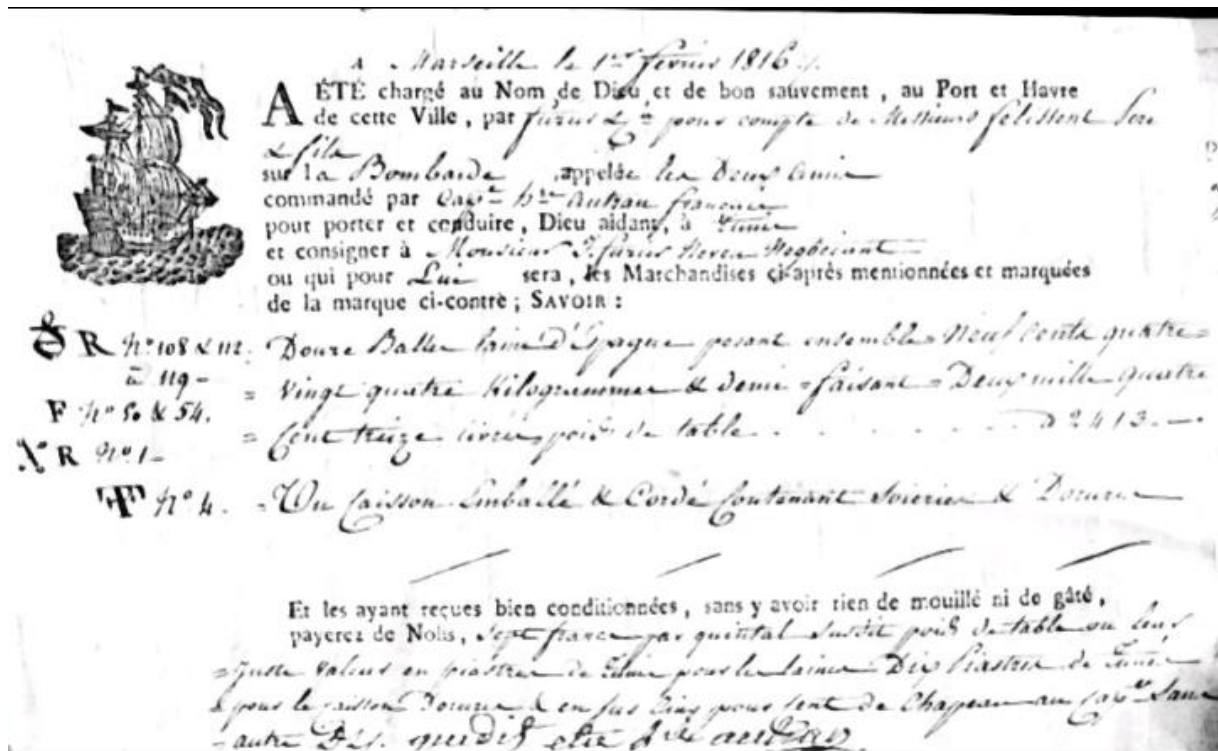 A Marseille le 1er fevrier 1816
A ÉTÉ chargé au Nom de Dieu et de bon sauvement, au Port et Havre
de cette Ville, par & pour compte de Messieurs Pere
& fils
sur la Bombarde appelée les Deux Amis
commandé par Capne Autran francaise
pour porter et conduire, Dieu aidant, à Tunis
et consigner à Monsieur Negociant
ou qui pour Lui sera, les Marchandises ci-après mentionnées et marquées
de la marque ci-contre ; SAVOIR :
R No 108 & 112. Douze Balles laine d'Espagne pesant ensemble = Neuf Cents quatre =
à 119 - = Vingt quatre Kilogrammes & demi = faisant = Deux mille quatre
F No 50 & 54. = Cent treize livres poids de table . . . . . 2413. -
R No 1 -
No 4. = Un Caisson Emballé & Cordé Contenant Soieries & Dorures
Et les ayant reçues bien conditionnées, sans y avoir rien de mouillé ni de gâté,
payerez de Nolis, Sept francs par quintal susdit poids de table ou leur
= Juste valeur en piastres de Tunis pour les laines Dix Piastres de Tunis
= pour le caisson Dorures & en sus Cinq pour Cent de Chapeau au Capne Sans
= autre